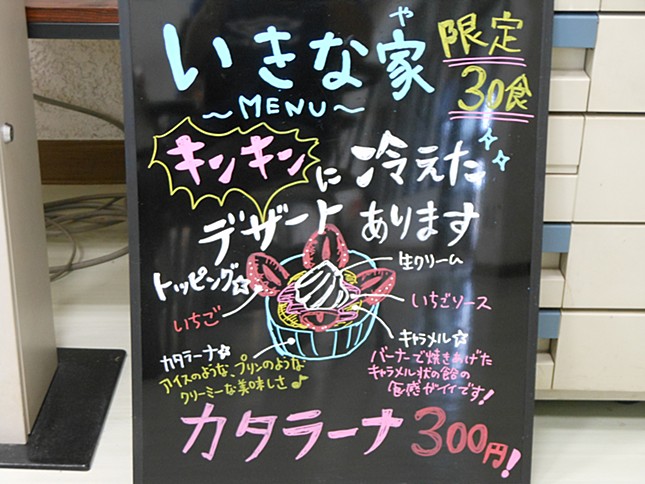 や
いきな家
限定
30食
～MENU～
キンキンに冷えた
デザートあります
生クリーム
トッピング☆
いちご
いちごソース
カタラーナ☆
アイスのような、プリンのような
クリーミーな美味しさ♪
キャラメル☆
バーナーで焼きあげた
キャラメル状の飴の
食感がイイです!
カタラーナ 300円!